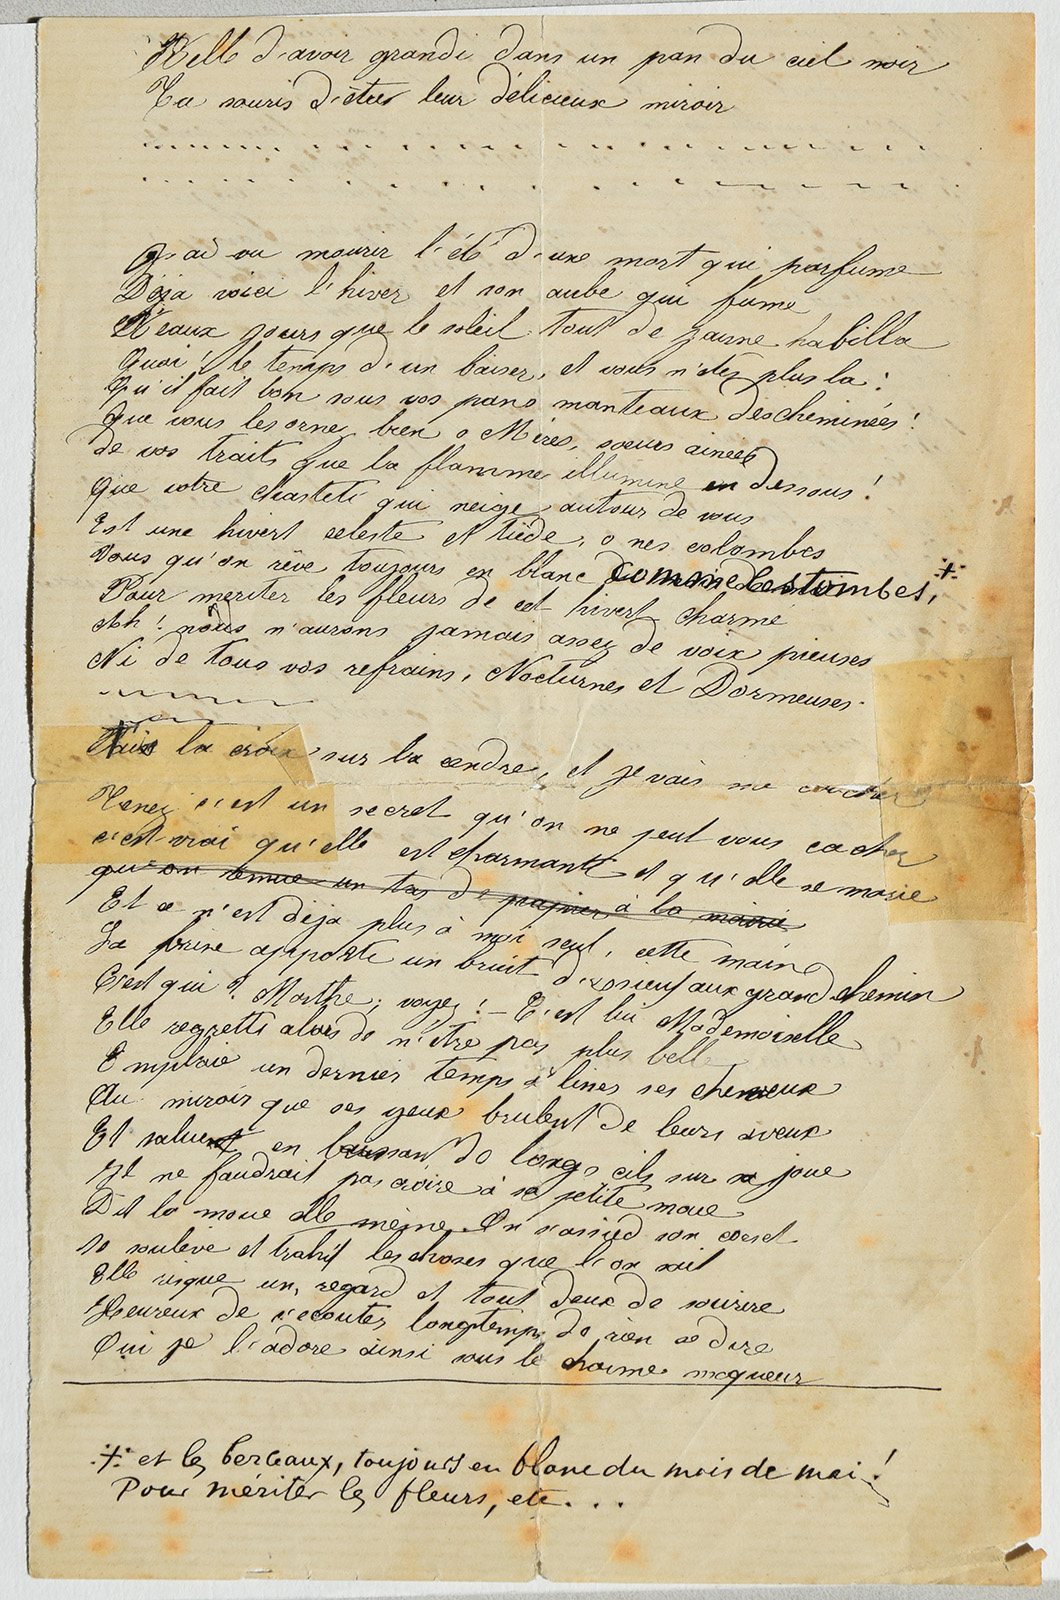 Belle d'avoir grandi dans un pan du ciel noir
Ta souris d'être leur délicieux miroir
J'ai vu mourir l'été d'une mort qui parfume
Déja voici l'hiver et son aube qui fume
Beaux jours que le soleil tout de jaune habilla
Quoi! le temps d'un baiser, et vous n'êtes plus la!
Qu'il fait bon sous vos pans manteaux des cheminées!
Que vous les orne bien o Mères, soeurs ainées
de vos traits que la flamme illumine en dessous!
Que votre chasteté qui neige autour de vous
Est une hivert celeste et tiède, o nos colombes
Vous qu'on rêve toujours en blanc comme des tombes,
Pour meriter les fleurs de cet hivert charmé
Ah! nous n'aurons jamais assez de voix pieuses
Ni de tous vos refrains, Nocturnes et Dormeuses.
Fais la croix sur la cendre, et je vais me coucher
Tenez c'est un secret qu'on ne peut vous cacher
c'est vrai qu'elle est charmante et qu'elle se marie
qu'on remue un tas de papier à la mairie
Et ce n'est déja plus à moi seul, cette main
La brise apporte un bruit d'essieuf aux grand chemin
C'est qui? Marthe; voyez! – C'est lui Mademoiselle
Elle regrette alors de n'être pas plus belle
Emploie un dernier temps à liner ses cheveux
Au miroir que ses yeux brulent de leurs aveux
Et saluent en baissant de longs cils sur sa joue
Il ne faudrait pas croire à sa petite moue
Dit la moue elle même. On s'assied son corset
se souleve et trahit les choses que l'on sait
Elle risque un, regard et tout deux de sourire
Heureux de s'écouter longtemps de rien se dire
Oui je l'adore ainsi sous le charme moqueur
·+· et les berceaux, toujours en blanc du mois de mai!
Pour mériter les fleurs, etc...